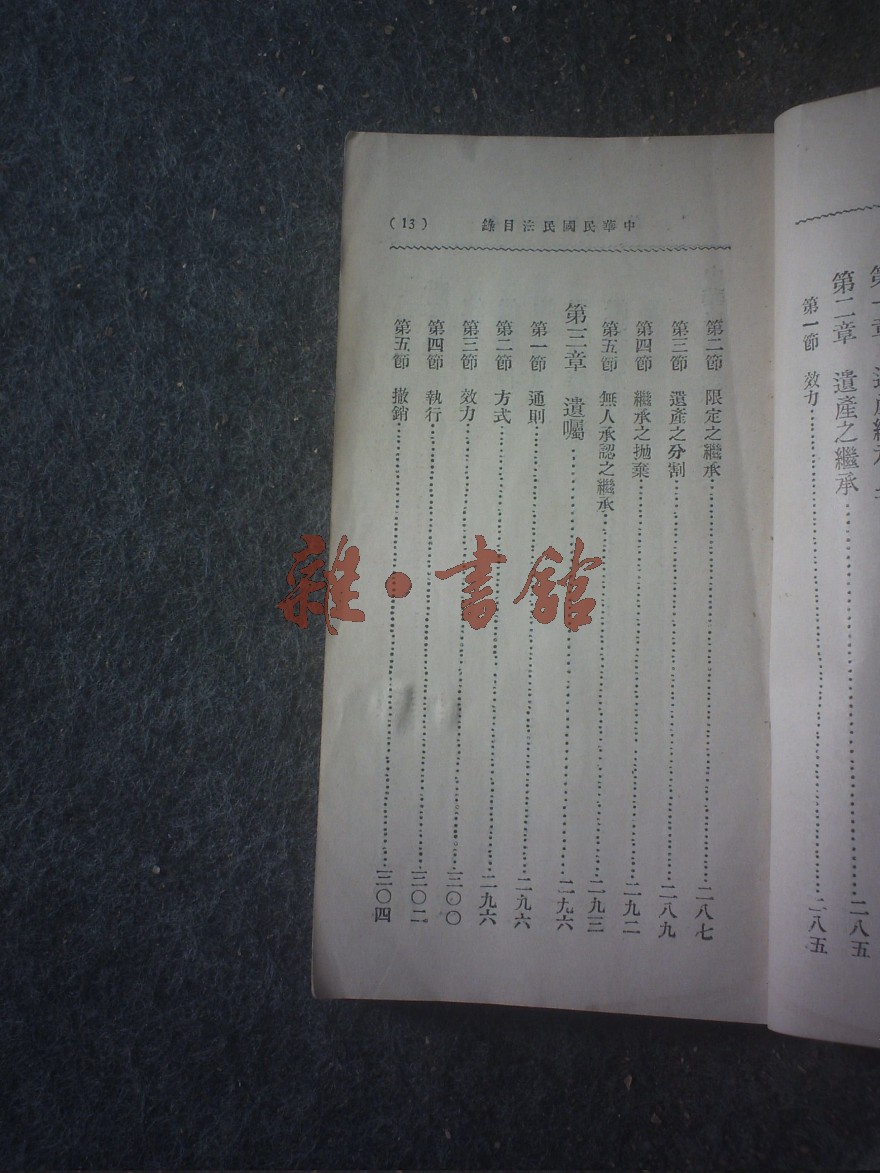 第二章　遺產之繼承……二八五
第一節　效力……二八五
中華民國民法目錄
(13)
第二節　限定之繼承……二八七
第三節　遺產之分割……二八九
第四節　繼承之拋棄……二九二
第五節　無人承認之繼承……二九三
第三章　遺囑……二九六
第一節　通則……二九六
第二節　方式……二九六
第三節　效力……三〇〇
第四節　執行……三〇二
第五節　撤銷……三〇四
雜·書館